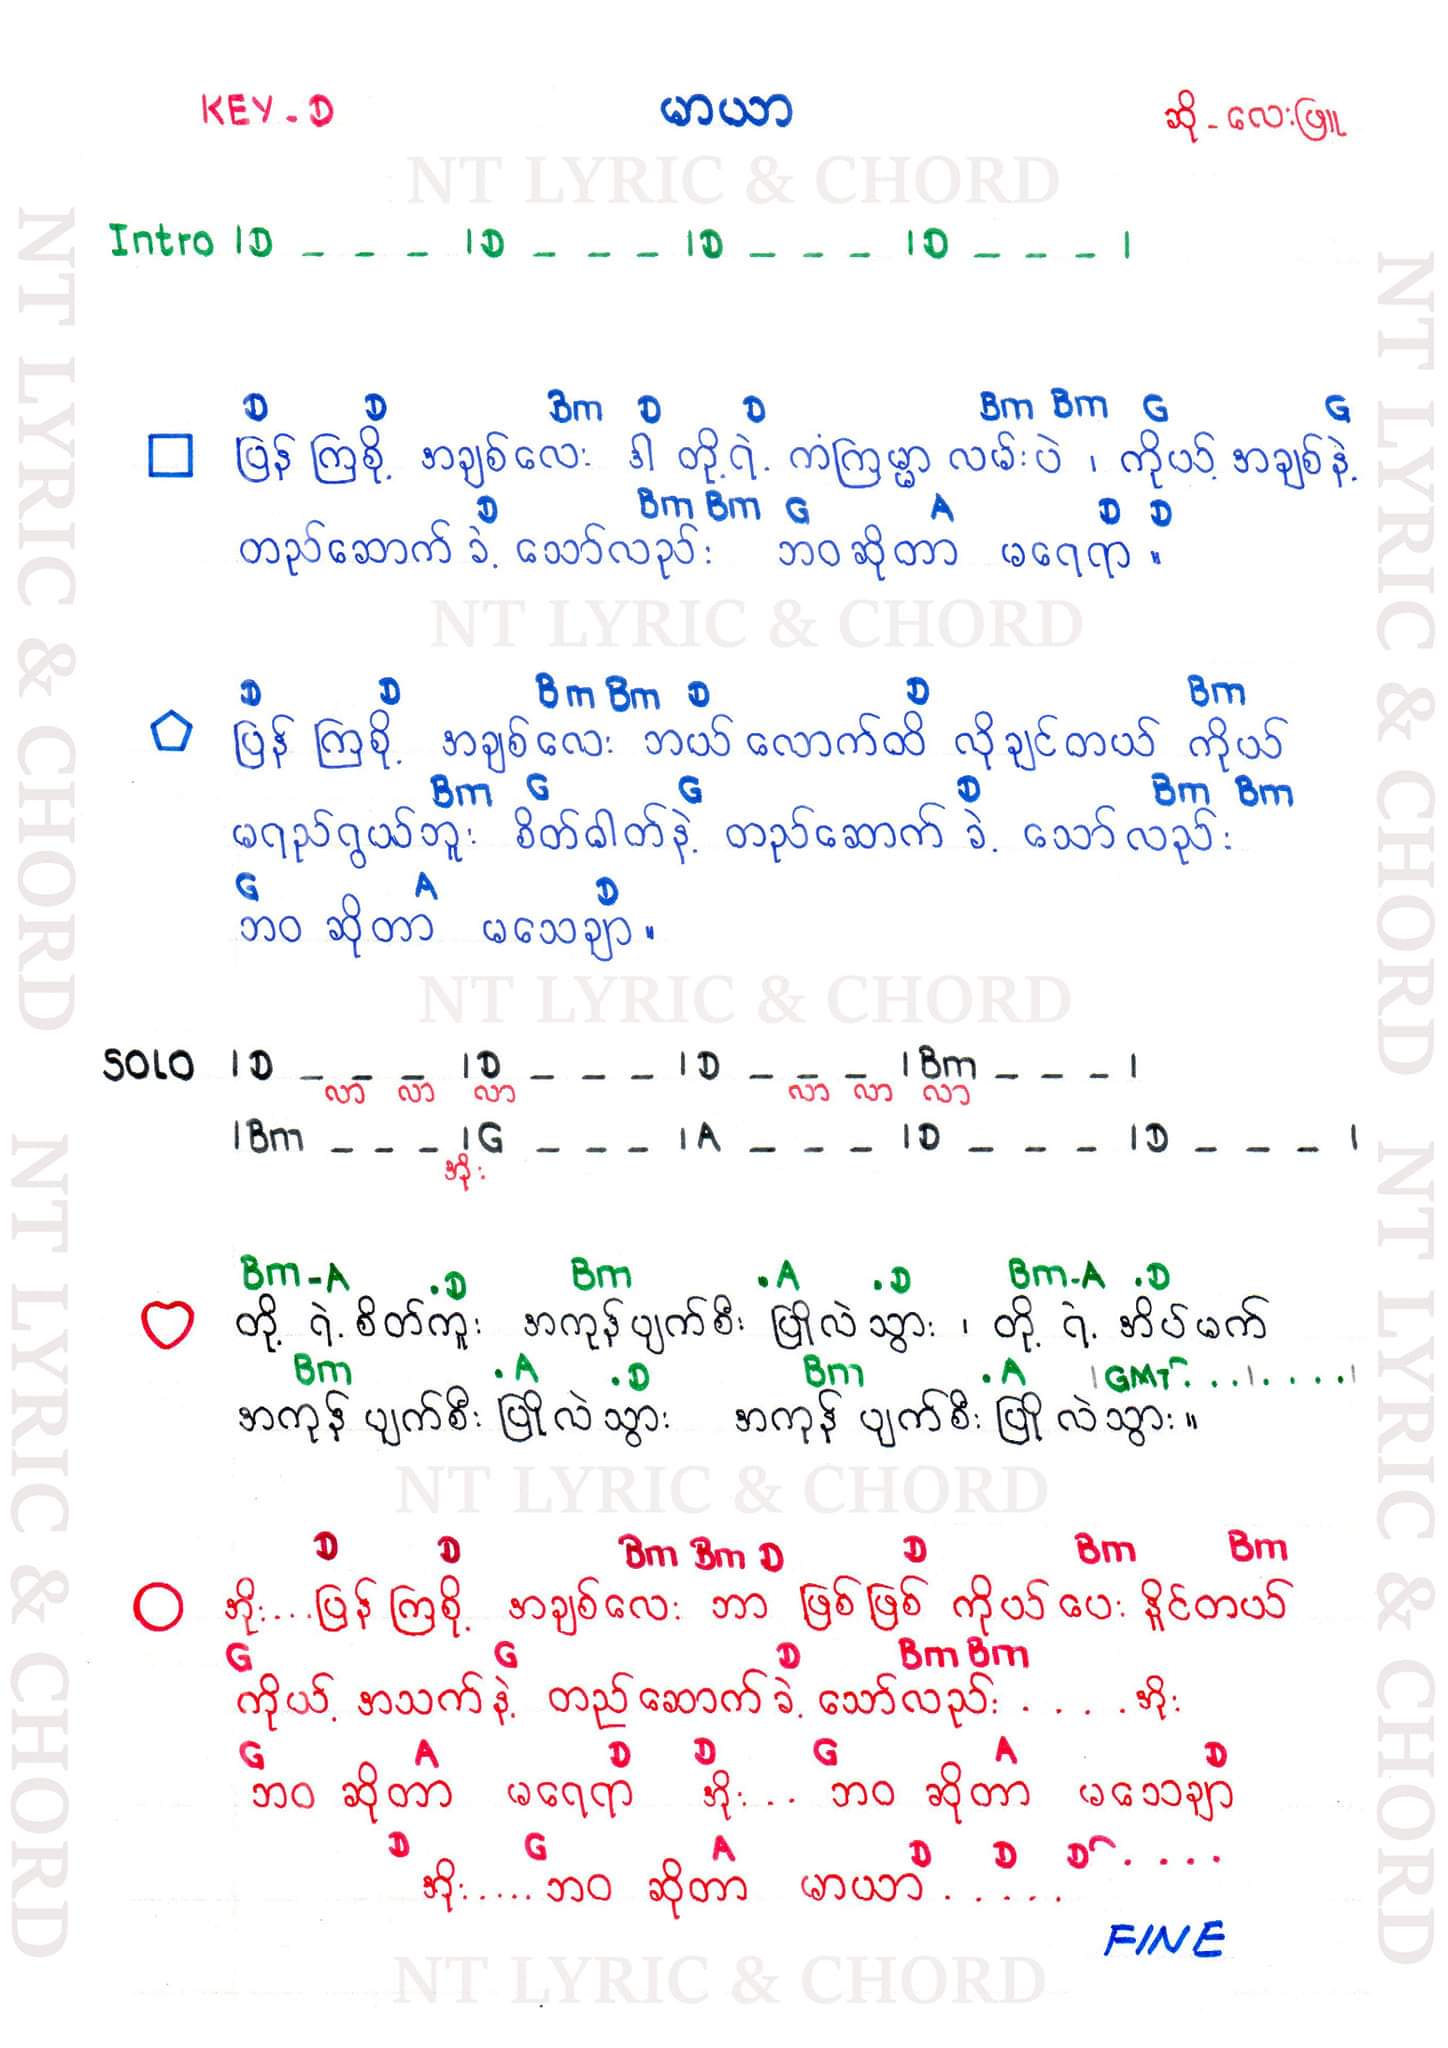 KEY - D မာယာ ဆို - လေးဖြူ
NT LYRIC & CHORD
Intro |D _ _ _ |D _ _ _ |D _ _ _ |D _ _ _ |
D D Bm D D Bm Bm G G
ပြန်ကြစို့ အချစ်လေး ဒါ တို့ရဲ့ ကံကြမ္မာ လမ်းပဲ ၊ ကိုယ့် အချစ်နဲ့
D Bm Bm G A D D
တည်ဆောက်ခဲ့ သော်လည်း ဘဝဆိုတာ မရေရာ ။
NT LYRIC & CHORD
D D Bm Bm D D Bm
ပြန်ကြစို့ အချစ်လေး ဘယ်လောက်ထိ လိုချင်တယ် ကိုယ်
Bm G G D Bm Bm
မရည်ရွယ်ဘူး စိတ်ဓါတ်နဲ့ တည်ဆောက်ခဲ့ သော်လည်း
G A D
ဘဝ ဆိုတာ မသေချာ ။
NT LYRIC & CHORD
SOLO |D _ _ _ |D _ _ _ |D _ _ _ |Bm _ _ _ |
လာ လာ လာ လာ လာ လာ
|Bm _ _ _ |G _ _ _ |A _ _ _ |D _ _ _ |D _ _ _ |
အိုး
Bm-A .D Bm .A .D Bm-A .D
တို့ ရဲ့ စိတ်ကူး အကုန်ပျက်စီး ပြိုလဲသွား ၊ တို့ ရဲ့ အိပ်မက်
Bm .A .D Bm .A |GM7 . . . | . . . . |
အကုန်ပျက်စီး ပြိုလဲသွား အကုန်ပျက်စီး ပြိုလဲသွား ။
NT LYRIC & CHORD
D D Bm Bm D D Bm Bm
အိုး...ပြန်ကြစို့ အချစ်လေး ဘာ ဖြစ်ဖြစ် ကိုယ်ပေး နိူင်တယ်
G G D Bm Bm
ကိုယ့် အသက်နဲ့ တည်ဆောက်ခဲ့ သော်လည်း . . . . အိုး
G A D D G A D
ဘဝ ဆိုတာ မရေရာ အိုး... ဘဝ ဆိုတာ မသေချာ
D G A D D D . . . .
အိုး.....ဘဝ ဆိုတာ မာယာ . . . . .
FINE
NT LYRIC & CHORD
NT LYRIC & CHORD
NT LYRIC & CHORD
NT LYRIC & CHORD
NT LYRIC & CHORD